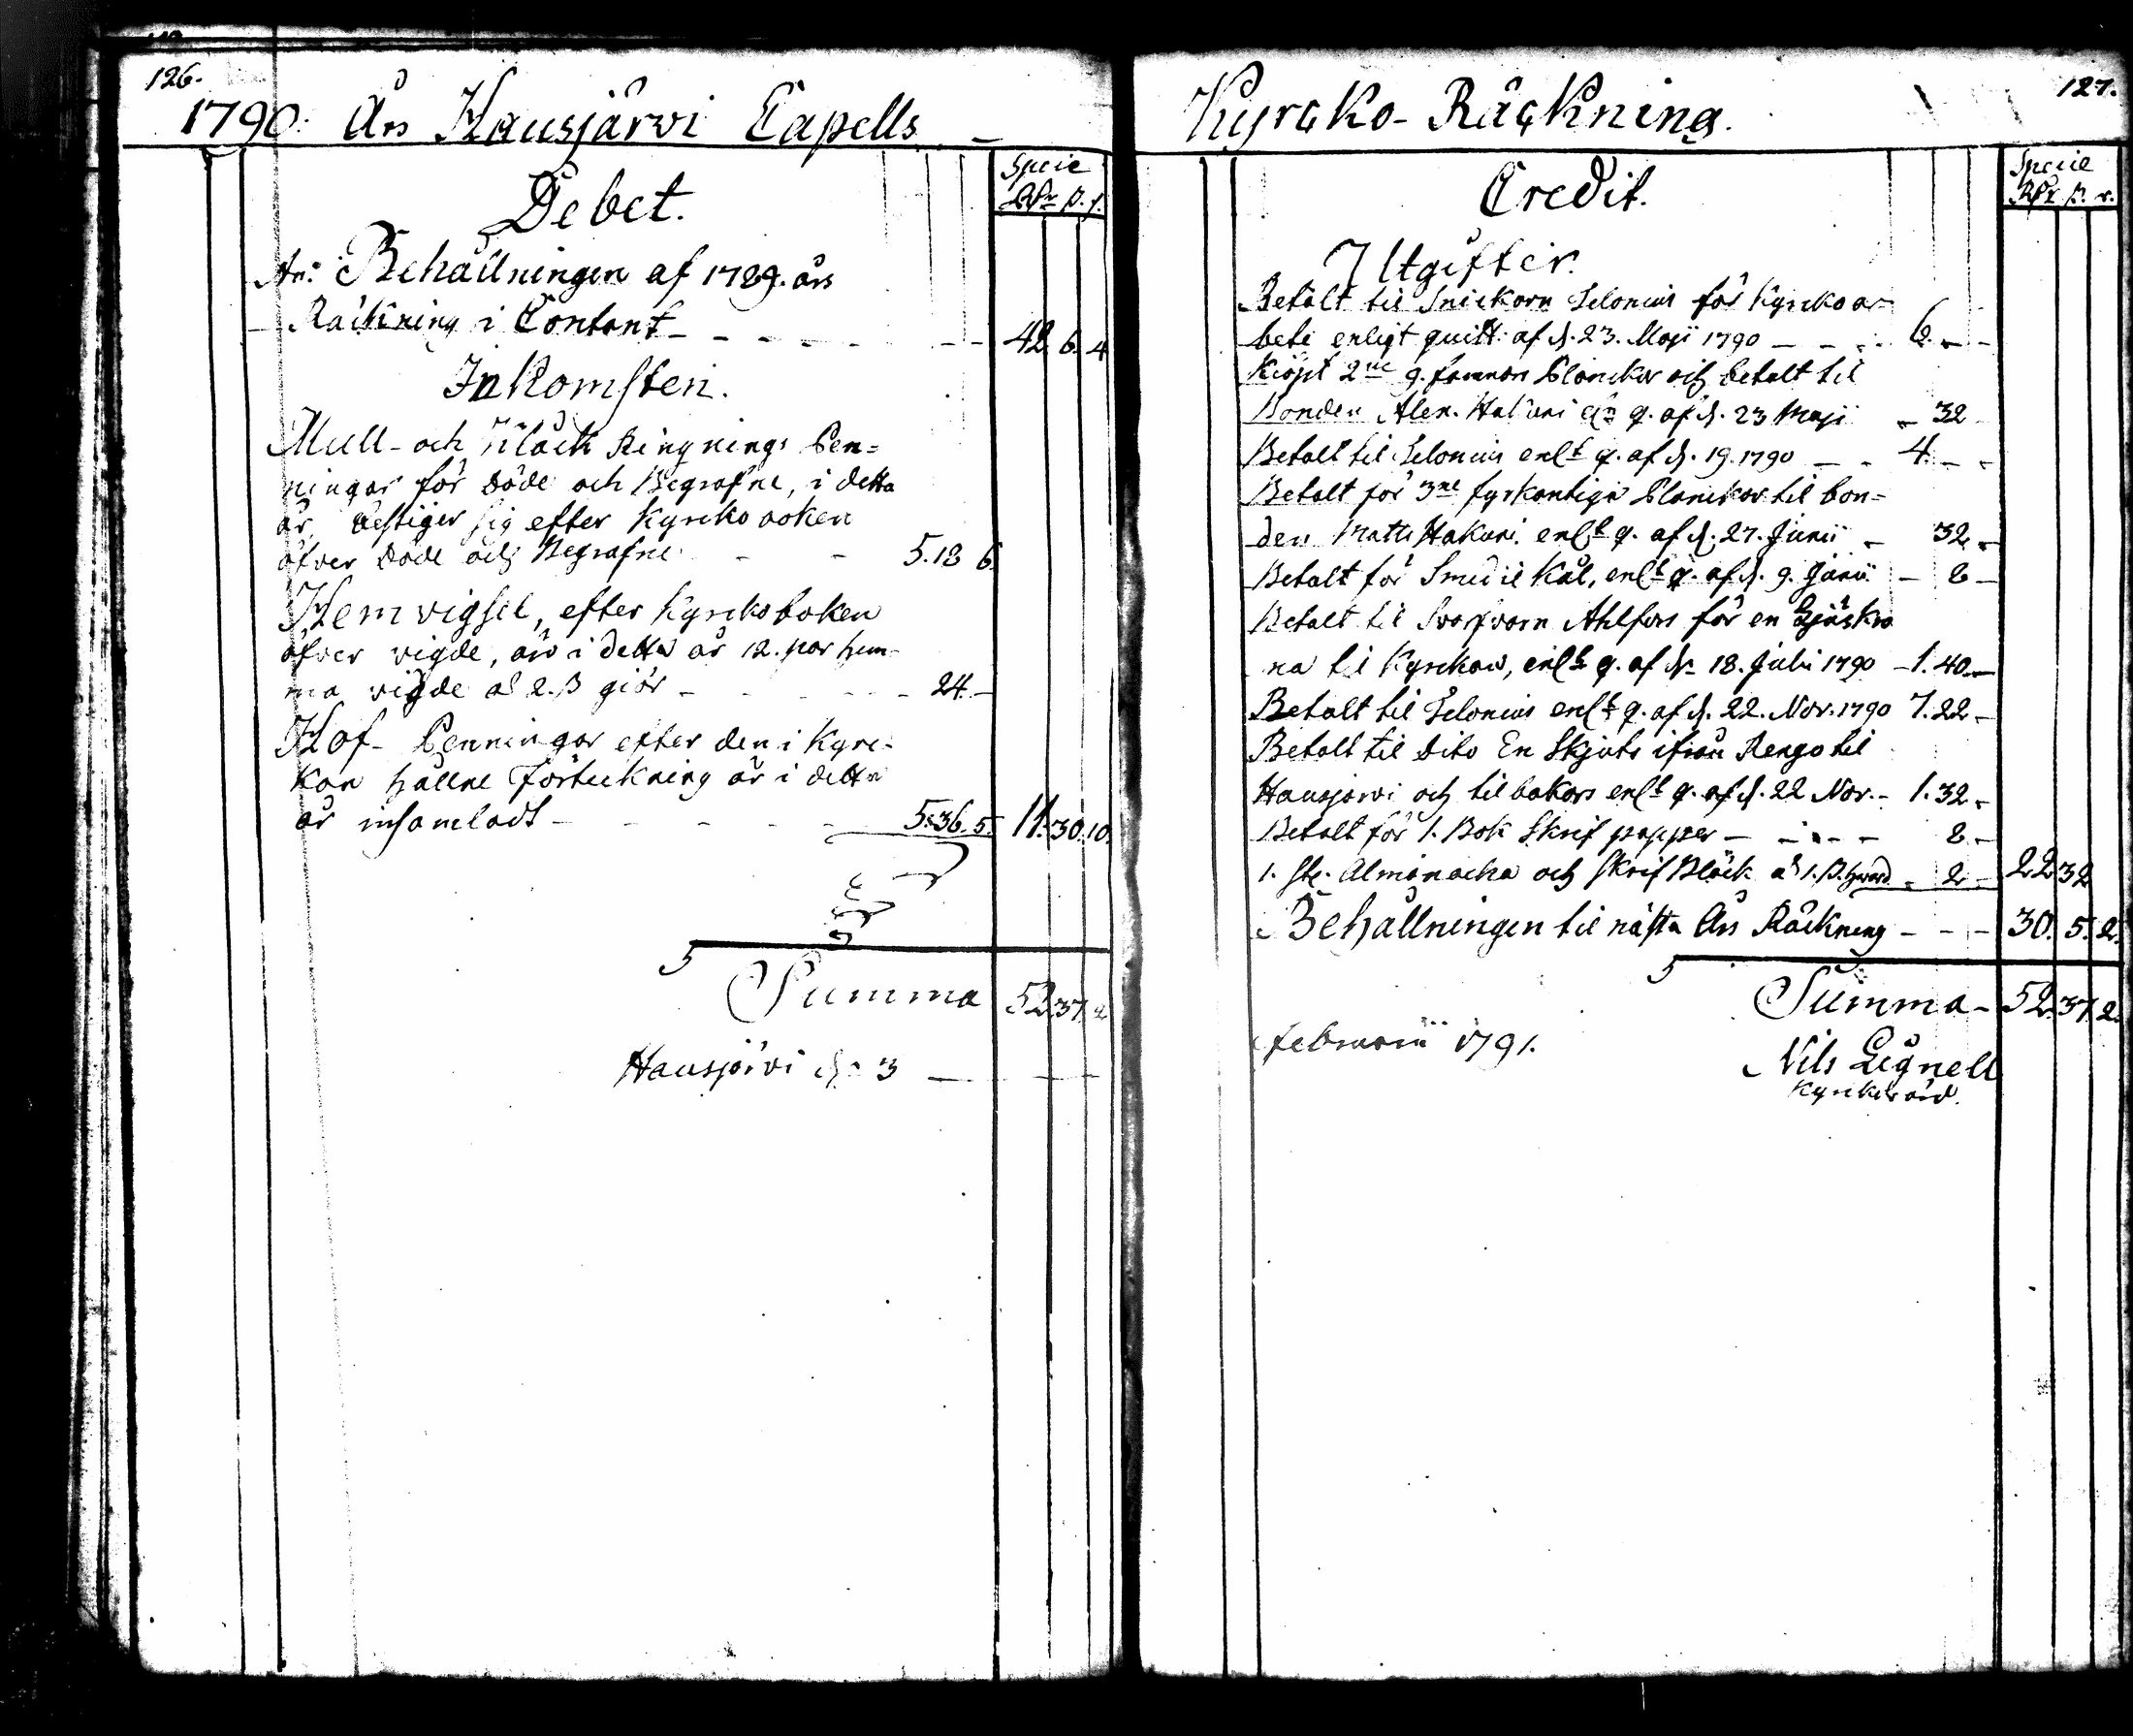 126.
1790. Års Hausjärvi Capells
Specie
Rdr ß. r.
Debet.
An: Behållningen af 1789. års
Räckning i Contant 42. 6. 4
Inkomsten.
Mull- och Klåck Ringnings Pen=
ningar för Döde och Begrafne, i detta
år bestiger sig efter Kyrcko boken
öfver Döde och Begrafne 5. 18 6.
Hemvigsel, efter Kyrckoboken
öfver vigde, äro i detta år 12. par hem-
ma vigde a 2. ß giör 24.
Hof- Penningar efter den i Kyrc-
kan hållne Förteckning är i detta
år insamladt 5. 36. 5. 11. 30. 10.
Summa 52. 37. 2
Hausjärvi d. 3
127.
Kyrcko-Räckning.
Specie
Rdr ß. r.
Credit.
Utgifter.
Betalt til Snickarn Selonius för Kyrcko ar
bete enligt quitt: af d. 23. Maji 1790 6.
Kiöpt 2ne q. famnar Planckor och betalt til
Bonden Alex. Hakuni q. af d. 23 Maji 32
Betalt til Selonius enlt q. af d. 19. 1790 4.
Betalt för 3ne fyrkantiga Planckor til bon=
den Matts Hakuni enlt q. af d. 27. Junii 32
Betalt för Smedie Kål, enlt q. af d. 9. Junii 8
Betalt til Svarfvarn Ahlfors för en Ljuskro
na til Kyrckan, enlt q. af d. 18. Julii 1790 1. 40.
Betalt til Selonius enlt q. af d. 22. Nov. 1790 7. 22
Betalt til Dito En Skjuts ifrån Rengo til
Hausjärvi och tilbakars enlt q. af d. 22 Nov. 1. 32
Betalt för 1. Bok Skrif papper 8
1. st. Almanacka och skrif Bläck a 1. ß. hvard 2 22 32
Behållningen til nästa Års Räckning 30. 5. 2.
Summa 52. 37. 2.
Februarii 1791.
Nils Lignell
Kyrckovärd.